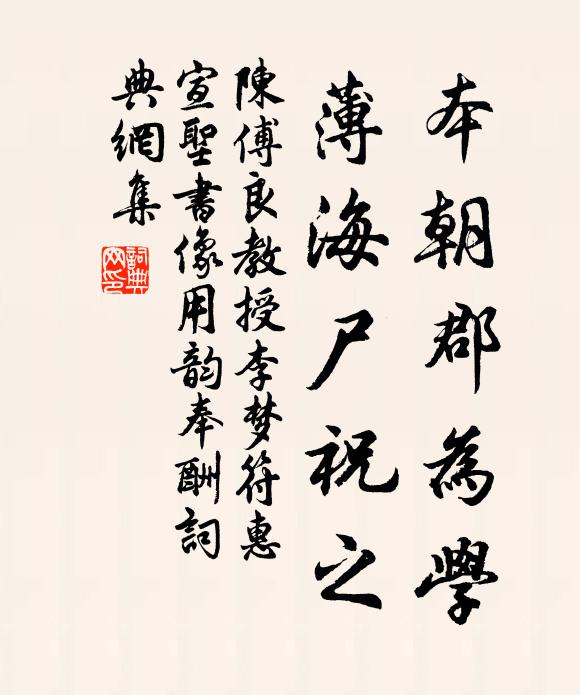 本朝郡為學
薄海尸祝之
陳傅良教授李梦符惠
宣聖書像用韵奉酬詞
典網集
詞典网印